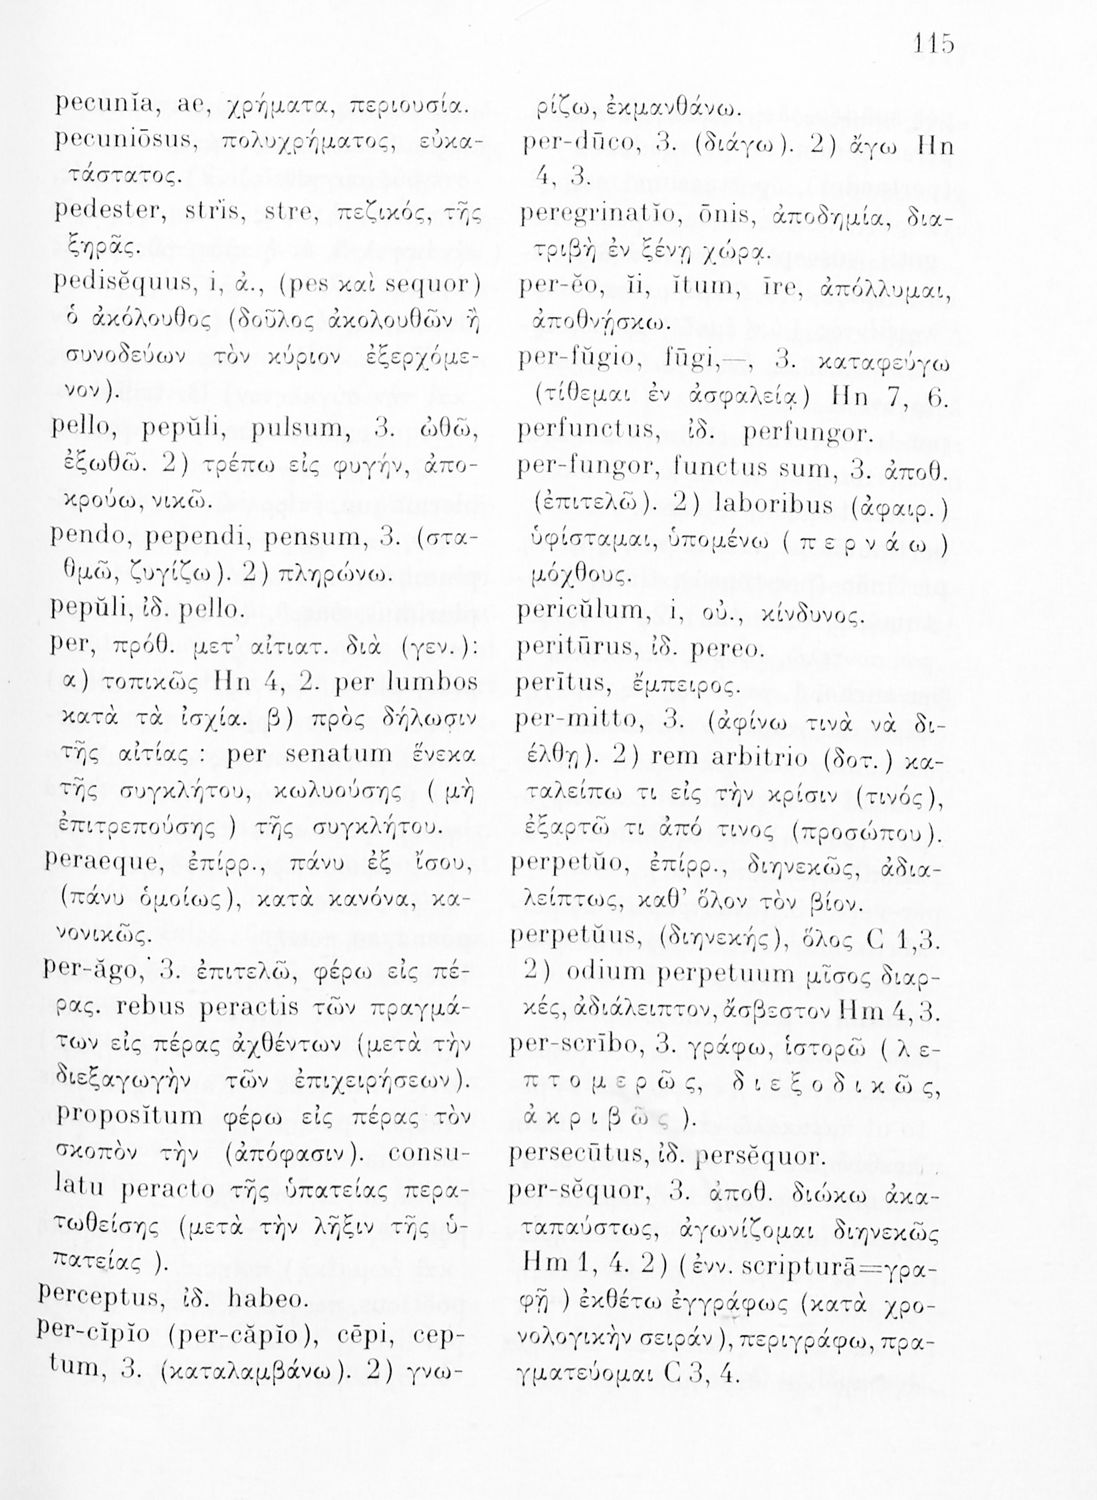 115
pecunĭa, ae, χρήματα, περιουσία.
pecuniōsus, πολυχρήματος, εὐκα-
τάστατος.
pedester, strĭs, stre, πεζικός, τῆς
ξηρᾶς.
pedisĕquus, i, ἀ., (pes καὶ sequor)
ὁ ἀκόλουθος (δοῦλος ἀκολουθῶν ἢ
συνοδεύων τὸν κύριον ἐξερχόμε-
νον).
pello, pepŭli, pulsum, 3. ὠθῶ,
ἐξωθῶ. 2) τρέπω εἰς φυγήν, ἀπο-
κρούω, νικῶ.
pendo, pependi, pensum, 3. (στα-
θμῶ, ζυγίζω). 2) πληρώνω.
pepŭli, ἰδ. pello.
per, πρόθ. μετ’ αἰτιατ. διὰ (γεν.):
α) τοπικῶς Hn 4, 2. per lumbos
κατὰ τὰ ἰσχία. β) πρὸς δήλωσιν
τῆς αἰτίας : per senatum ἕνεκα
τῆς συγκλήτου, κωλυούσης ( μὴ
ἐπιτρεπούσης ) τῆς συγκλήτου.
peraeque, ἐπίρρ., πάνυ ἐξ ἴσου,
(πάνυ ὁμοίως), κατὰ κανόνα, κα-
νονικῶς.
per-ăgo, 3. ἐπιτελῶ, φέρω εἰς πέ-
ρας. rebus peractis τῶν πραγμά-
των εἰς πέρας ἀχθέντων (μετὰ τὴν
διεξαγωγὴν τῶν ἐπιχειρήσεων).
proposĭtum φέρω εἰς πέρας τὸν
σκοπὸν τὴν (ἀπόφασιν). consu-
latu peracto τῆς ὑπατείας περα-
τωθείσης (μετὰ τὴν λῆξιν τῆς ὑ-
πατείας ).
perceptus, ἰδ. habeo.
per-cĭpĭo (per-căpĭo), cēpi, cep-
tum, 3. (καταλαμβάνω). 2) γνω-
ρίζω, ἐκμανθάνω.
per-dūco, 3. (διάγω). 2) ἄγω Hn
4, 3.
peregrinatĭo, ōnis, ἀποδημία, δια-
τριβὴ ἐν ξένῃ χώρᾳ.
per-ĕo, ĭi, ĭtum, īre, ἀπόλλυμαι,
ἀποθνήσκω.
per-fŭgio, fūgi,—, 3. καταφεύγω
(τίθεμαι ἐν ἀσφαλείᾳ) Hn 7, 6.
perfunctus, ἰδ. perfungor.
per-fungor, functus sum, 3. ἀποθ.
(ἐπιτελῶ). 2) laboribus (ἀφαιρ.)
ὑφίσταμαι, ὑπομένω ( π ε ρ ν ά ω )
μόχθους.
pericŭlum, i, οὐ., κίνδυνος.
peritūrus, ἰδ. pereo.
perītus, ἔμπειρος.
per-mitto, 3. (ἀφίνω τινὰ νὰ δι-
έλθῃ). 2) rem arbitrio (δοτ.) κα-
ταλείπω τι εἰς τὴν κρίσιν (τινός),
ἐξαρτῶ τι ἀπό τινος (προσώπου).
perpetŭo, ἐπίρρ., διηνεκῶς, ἀδια-
λείπτως, καθ’ ὅλον τὸν βίον.
perpetŭus, (διηνεκής), ὅλος C 1,3.
2) odium perpetuum μῖσος διαρ-
κές, ἀδιάλειπτον, ἄσβεστον Hm 4, 3.
per-scrībo, 3. γράφω, ἱστορῶ ( λ ε-
π τ ο μ ε ρ ῶ ς, δ ι ε ξ ο δ ι κ ῶ ς,
ἀ κ ρ ι β ῶ ς ).
persecūtus, ἰδ. persĕquor.
per-sĕquor, 3. ἀποθ. διώκω ἀκα-
ταπαύστως, ἀγωνίζομαι διηνεκῶς
Hm 1, 4. 2) (ἐνν. scripturā=γρα-
φῇ ) ἐκθέτω ἐγγράφως (κατὰ χρο-
νολογικὴν σειράν), περιγράφω, πρα-
γματεύομαι C 3, 4.